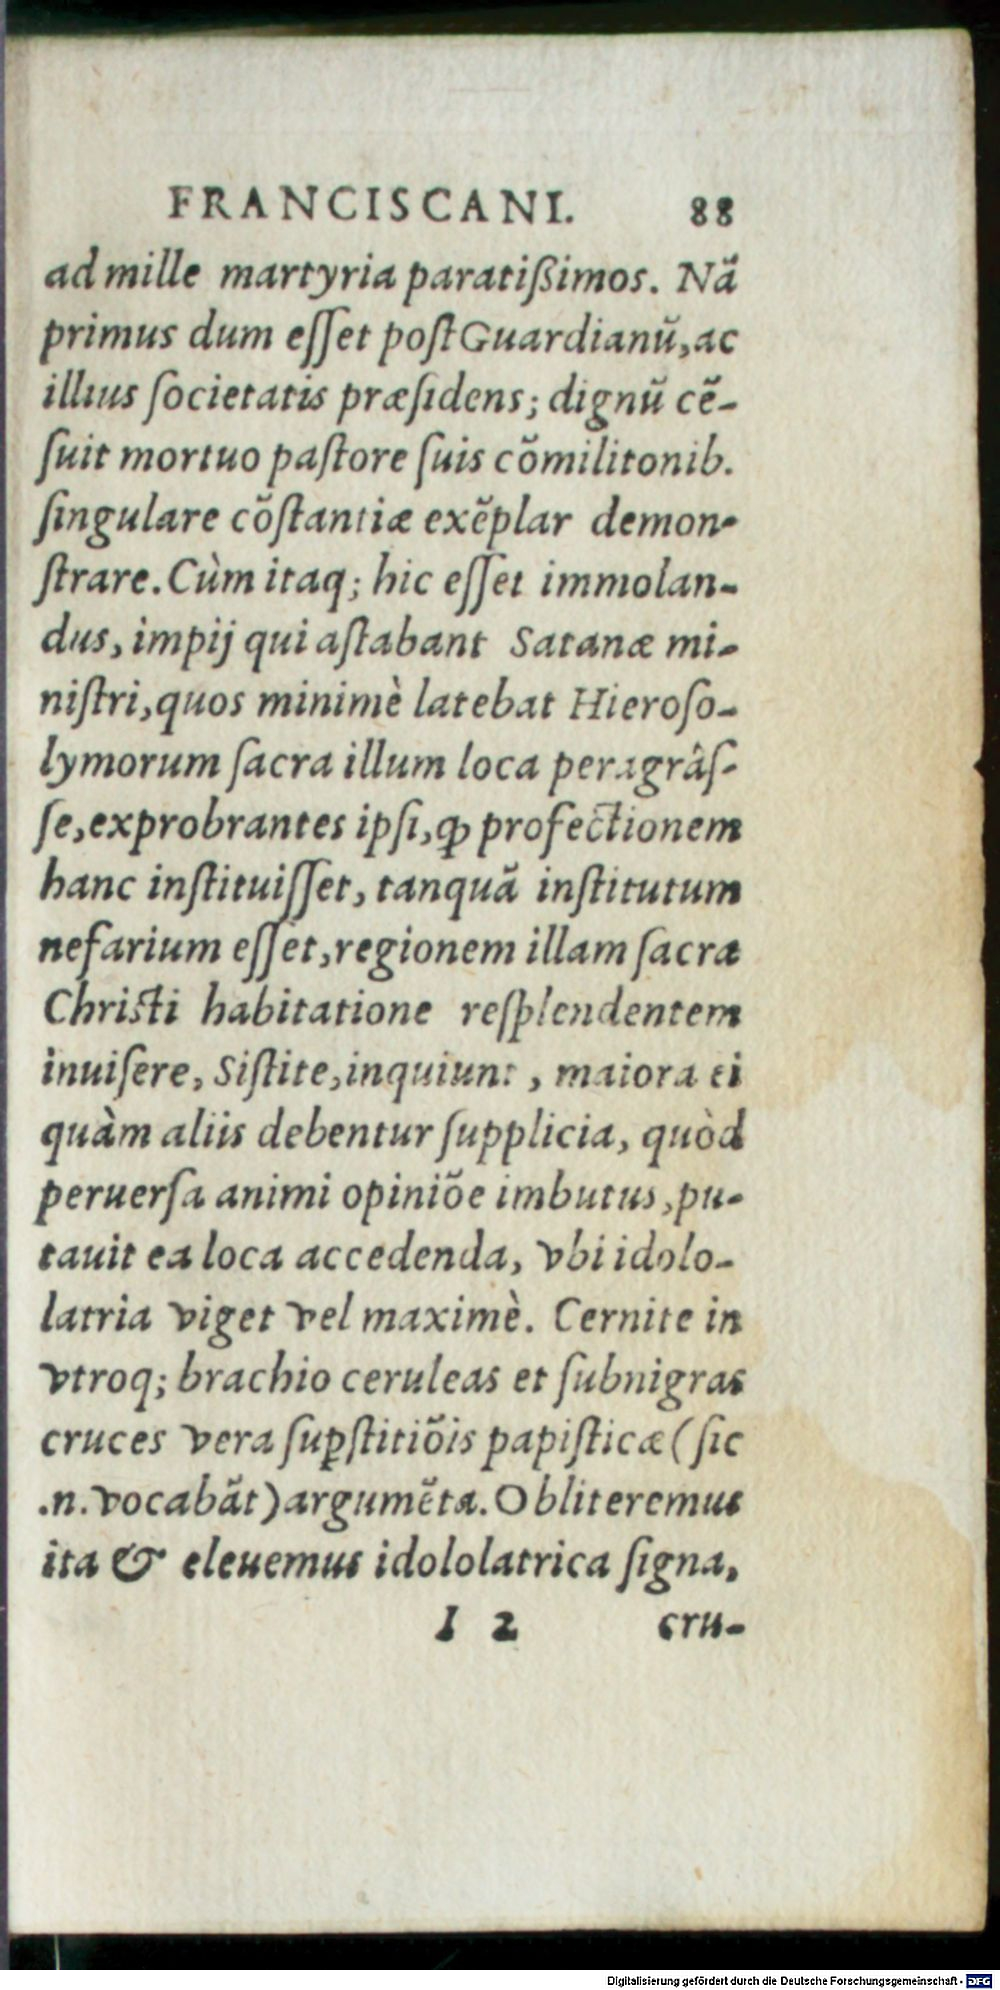 FRANCISCANI. 88
ad mille martyria paratißimos. Nã
primus dum eſſet poſt Guardianũ, ac
illius ſocietatis præſidens; dignũ cẽ-
ſuit mortuo paſtore ſuis cõmilitonib.
ſingulare cõſtantiæ exẽplar demon-
ſtrare. Cùm itaq; hic eſſet immolan-
dus, impij qui aſtabant Satanæ mi-
niſtri, quos minimè latebat Hieroſo-
lymorum ſacra illum loca peragrâſ-
ſe, exprobrantes ipſi, ꝙ profectionem
hanc inſtituiſſet, tanquã inſtitutum
nefarium eſſet, regionem illam ſacra
Chriſti habitatione reſplendentem
inuiſere, Siſtite, inquiunt, maiora ei
quàm aliis debentur ſupplicia, quòd
peruerſa animi opiniõe imbutus, pu-
tauit ea loca accedenda, vbi idolo-
latria viget vel maximè. Cernite in
vtroq; brachio ceruleas et ſubnigras
cruces vera ſuꝑſtitiõis papiſticæ (ſic
.n. vocabãt) argumẽta. Obliteremus
ita & eleuemus idololatrica ſigna,
I 2 cru-
Digitalisierung gefördert durch die Deutsche Forschungsgemeinschaft - DFG